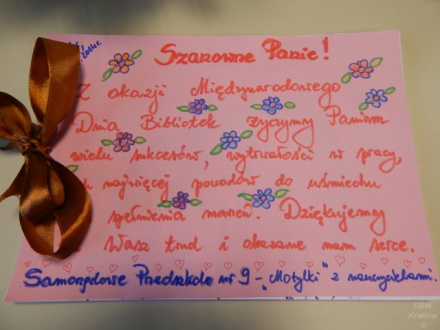 Szanowne Panie!
Z okazji Międzynarodowego
Dnia Bibliotek życzymy Paniom
wielu sukcesów, wytrwałości w pracy,
jak najwięcej powodów do uśmiechu
spełnienia marzeń. Dziękujemy
Wasz trud i okazane nam serce.
Samorządowe Przedszkole nr 9 - "Motylki" z nauczycielami.
PBW
Kraków